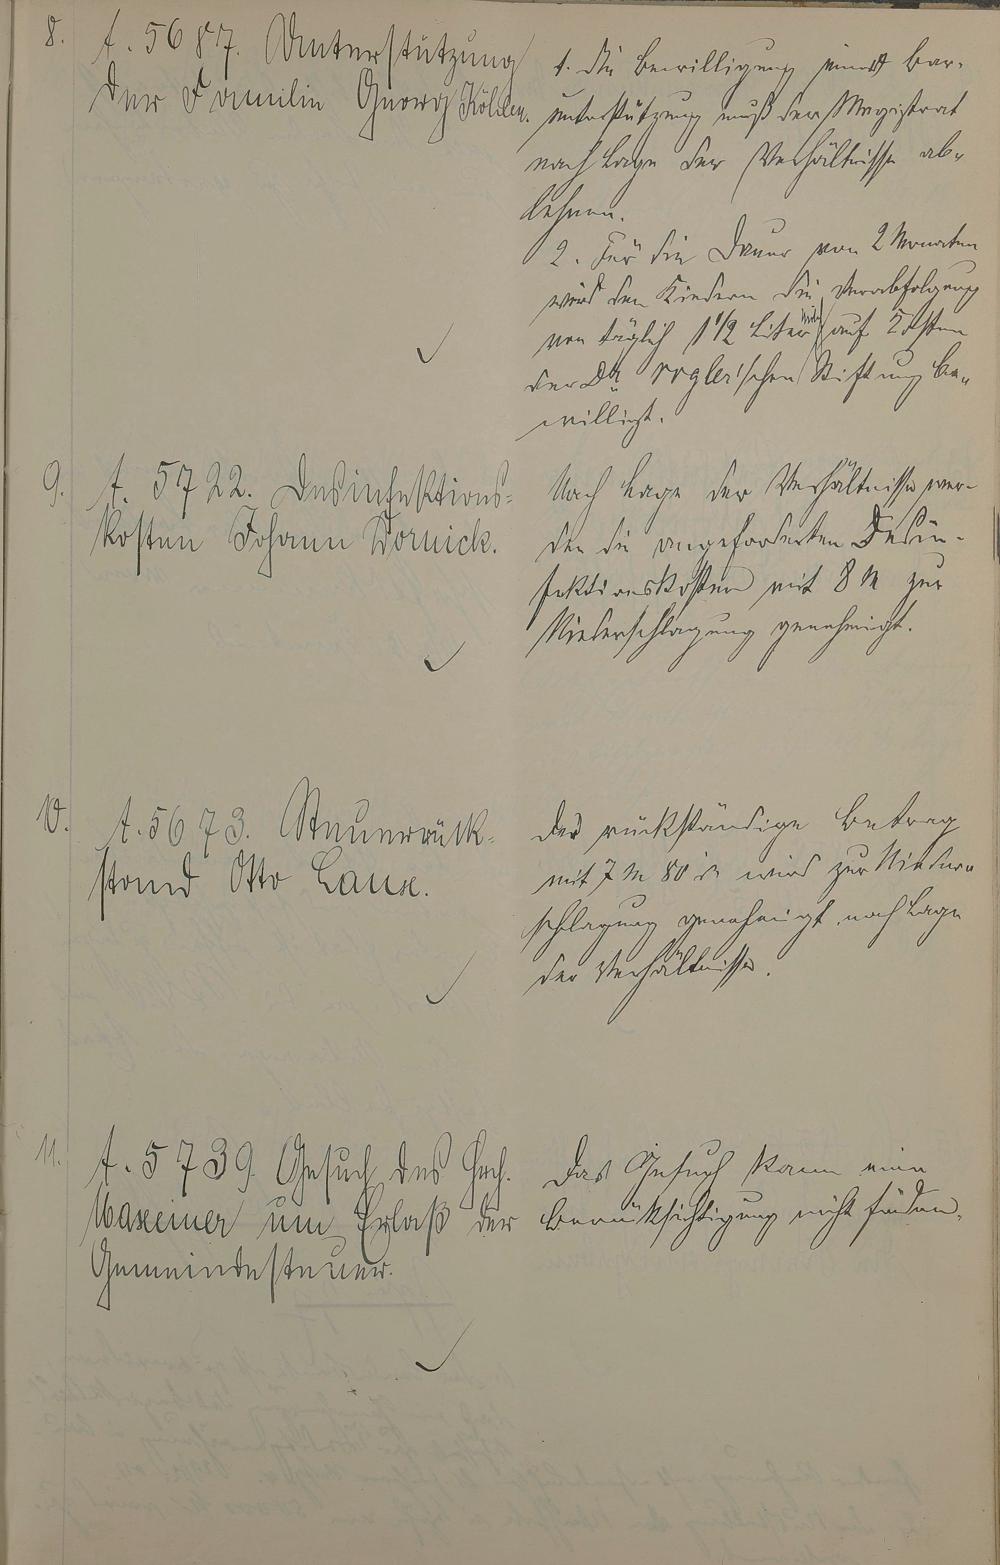 8. A. 5687. Unterstützung
der Familie Georg Köhler.
1. Die Bewilligung einer Bar-
unterstützung muß der Magistrat
nach Lage der Verhältnisse ab-
lehnen.
2. Für die Dauer von 2 Monaten
wird den Kindern die Verabfolgung
von täglich 1 1/2 Liter Milch auf Kosten
der Dr. 'schen Stiftung be-
willigt.
9. A. 5722. Desinfektions-
kosten Johann Dornick.
Nach Lage der Verhältnisse wer-
den die angeforderten Desin-
fektionskosten mit 8 M zur
Niederschlagung genehmigt.
10. A. 5673. Steuerrück-
stand Otto Laux.
Der rückständige Betrag
mit 7 M 80 wird zur Nieder-
schlagung genehmigt nach Lage
der Verhältnisse.
11. A. 5739. Gesuch des Hrch.
Maxeiner um Erlaß der
Gemeindesteuer.
Das Gesuch kann eine
Berücksichtigung nicht finden.